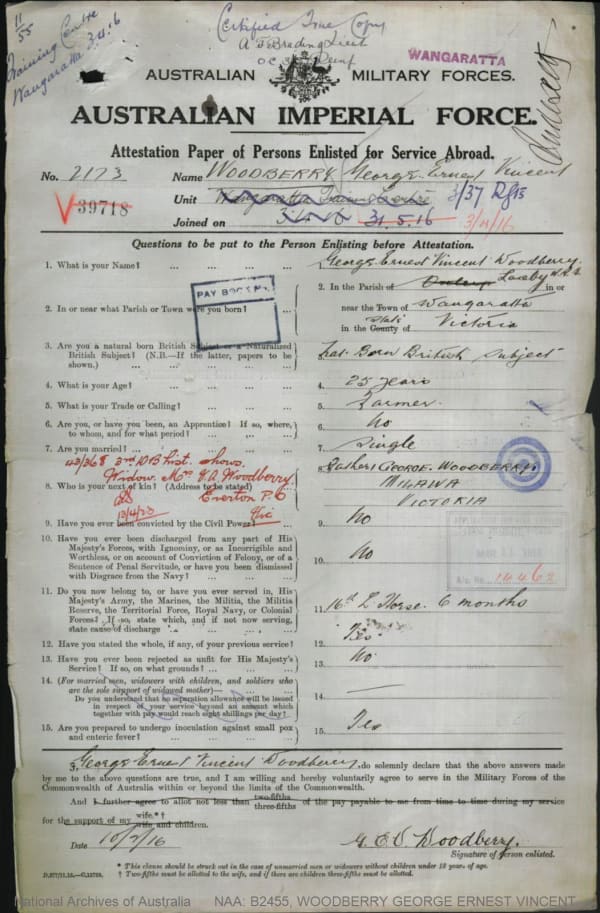 11/55
Training Centre
Wangaratta 3.4.16
Certified True Copy
A J Brading Lieut
O.C. Reinf
WANGARATTA
AUSTRALIAN MILITARY FORCES.
AUSTRALIAN IMPERIAL FORCE.
Attestation Paper of Persons Enlisted for Service Abroad.
No. 2173 Name WOODBERRY George Ernest Vincent
V39718 Unit Wangaratta Training Centre 3/37 Rfts
Joined on 31.5.16 3/4/16
Questions to be put to the Person Enlisting before Attestation.
1. What is your Name? ... ... ... 1. George Ernest Vincent Woodberry
PAY BOOK
2. In or near what Parish or Town were you born? ... 2. In the Parish of in or
near the Town of Wangaratta
in the County of State Victoria
3. Are you a natural born British Subject or a Naturalized British Subject? (N.B.—If the latter, papers to be shown.) ... ... 3. Nat. Born British Subject
4. What is your Age? ... ... ... 4. 25 years
5. What is your Trade or Calling? ... ... 5. Farmer
6. Are you, or have you been, an Apprentice? If so, where, to whom, and for what period? ... ... 6. No
7. Are you married? ... ... 7. Single
43/368 3rd D.B. list. shows.
Widow. Mrs V.A. Woodberry.
8. Who is your next of kin? (Address to be stated) 8. Father) GEORGE. WOODBERRY
MILAWA
VICTORIA
Everton P.O
Vic
13/4/23
9. Have you ever been convicted by the Civil Power? ... 9. No
10. Have you ever been discharged from any part of His Majesty's Forces, with Ignominy, or as Incorrigible and Worthless, or on account of Conviction of Felony, or of a Sentence of Penal Servitude, or have you been dismissed with Disgrace from the Navy? ... ... 10. No
14463
11. Do you now belong to, or have you ever served in, His Majesty's Army, the Marines, the Militia, the Militia Reserve, the Territorial Force, Royal Navy, or Colonial Forces? If so, state which, and if not now serving, state cause of discharge ... ... 11. 16th L Horse. 6 months
12. Have you stated the whole, if any, of your previous service? 12. Yes
13. Have you ever been rejected as unfit for His Majesty's Service? If so, on what grounds? ... ... 13. No
14. (For married men, widowers with children, and soldiers who are the sole support of widowed mother)— ... ... 14. —
Do you understand that no separation allowance will be issued in respect of your service beyond an amount which together with pay would reach eight shillings per day?
15. Are you prepared to undergo inoculation against small pox and enteric fever? ... ... 15. Yes
I, George Ernest Vincent Woodberry, do solemnly declare that the above answers made
by me to the above questions are true, and I am willing and hereby voluntarily agree to serve in the Military Forces of the
Commonwealth of Australia within or beyond the limits of the Commonwealth.
And I further agree to allot not less than two-fifths three-fifths of the pay payable to me from time to time during my service
for the support of my wife.*† wife and children.
Date 10/2/16 G. E. V. Woodberry.
Signature of person enlisted.
* This clause should be struck out in the case of unmarried men or widowers without children under 18 years of age.
† Two-fifths must be allotted to the wife, and if there are children three-fifths must be allotted.
National Archives of Australia NAA: B2455, WOODBERRY GEORGE ERNEST VINCENT